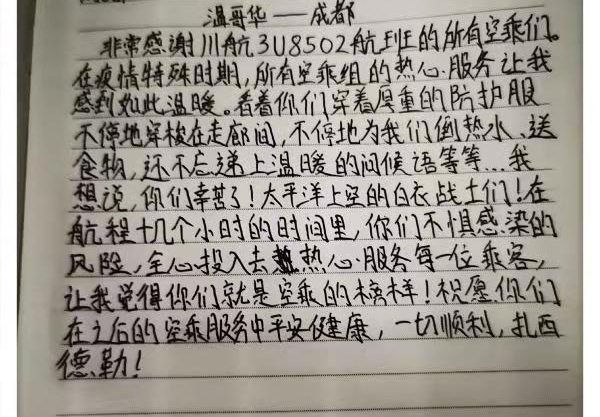 温哥华——成都
非常感谢川航3U8502航班的所有空乘们。
在疫情特殊时期，所有空乘组的热心服务让我
感到如此温暖。看着你们穿着厚重的防护服
不停地穿梭在走廊间，不停地为我们倒热水、送
食物，还不忘递上温暖的问候语等等…我
想说，你们辛苦了！太平洋上空的白衣战士们！在
航程十几个小时的时间里，你们不惧感染的
风险，全心投入去热心服务每一位乘客，
让我觉得你们就是空乘的榜样！祝愿你们
在之后的空乘服务中平安健康，一切顺利，扎西
德勒！